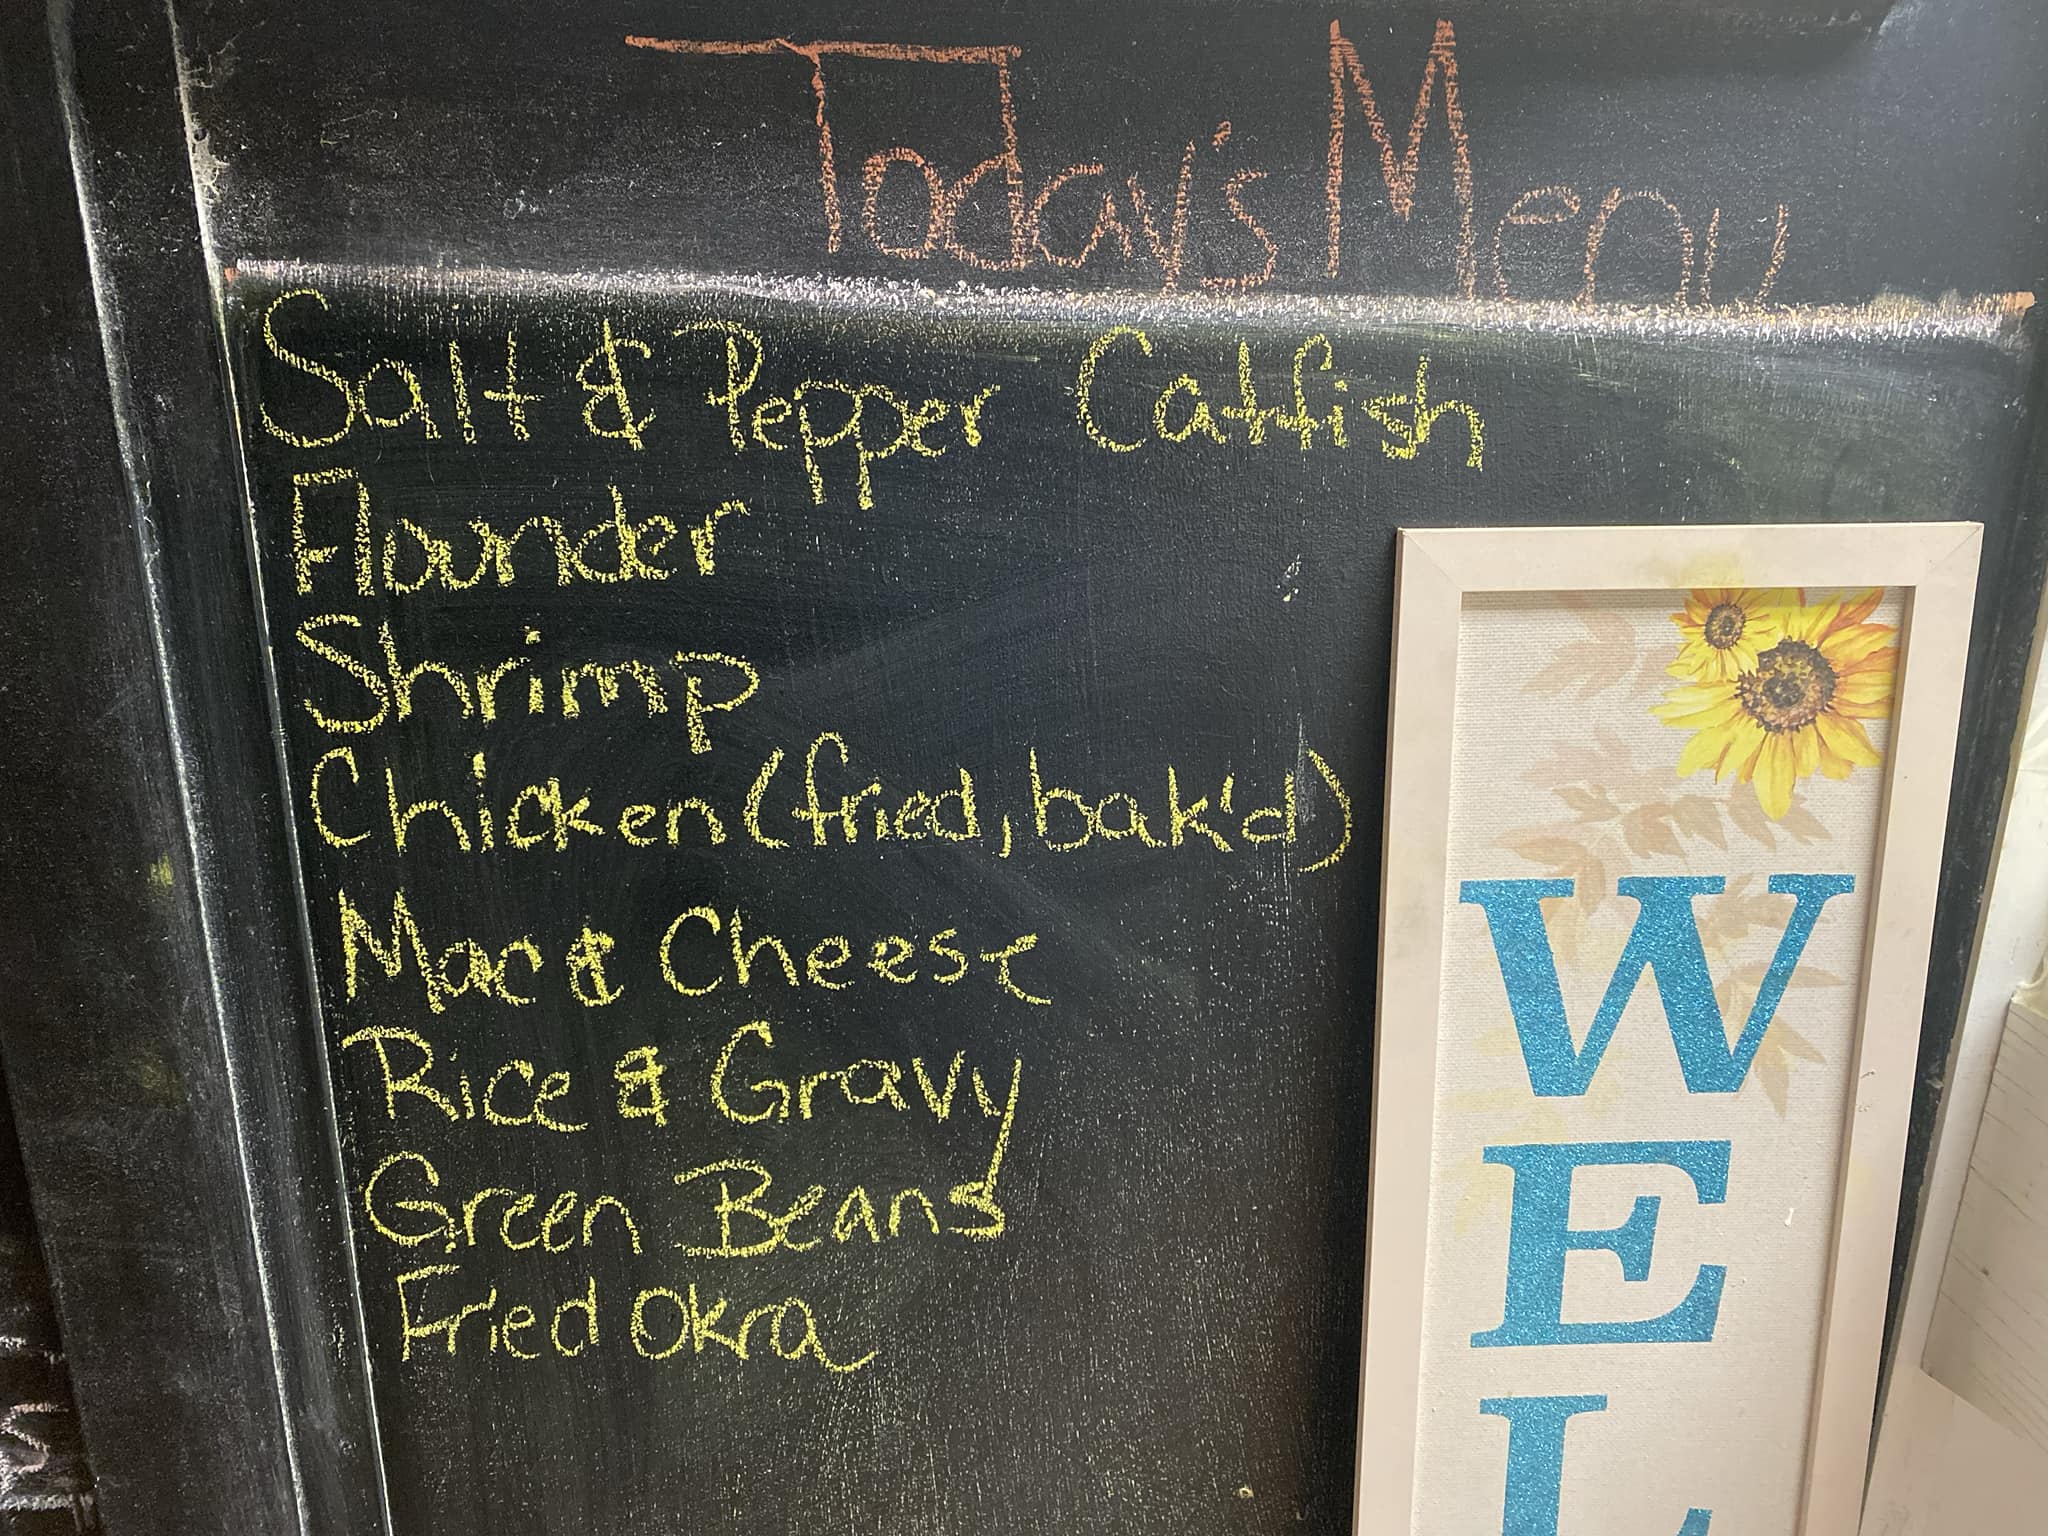 Today's Menu
Salt & Pepper Catfish
Flounder
Shrimp
Chicken (fried, bak'd)
Mac & Cheese
Rice & Gravy
Green Beans
Fried Okra
W
E
L